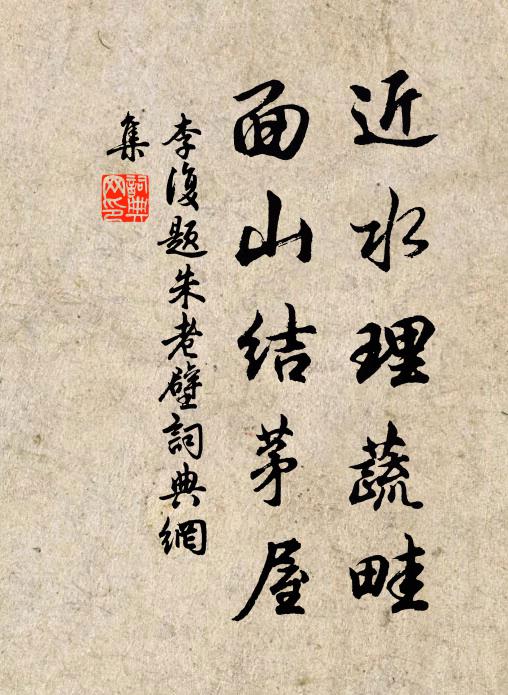 近水理蔬畦
面山结茅屋
李復题朱老壁詞典網
集
詞典网印